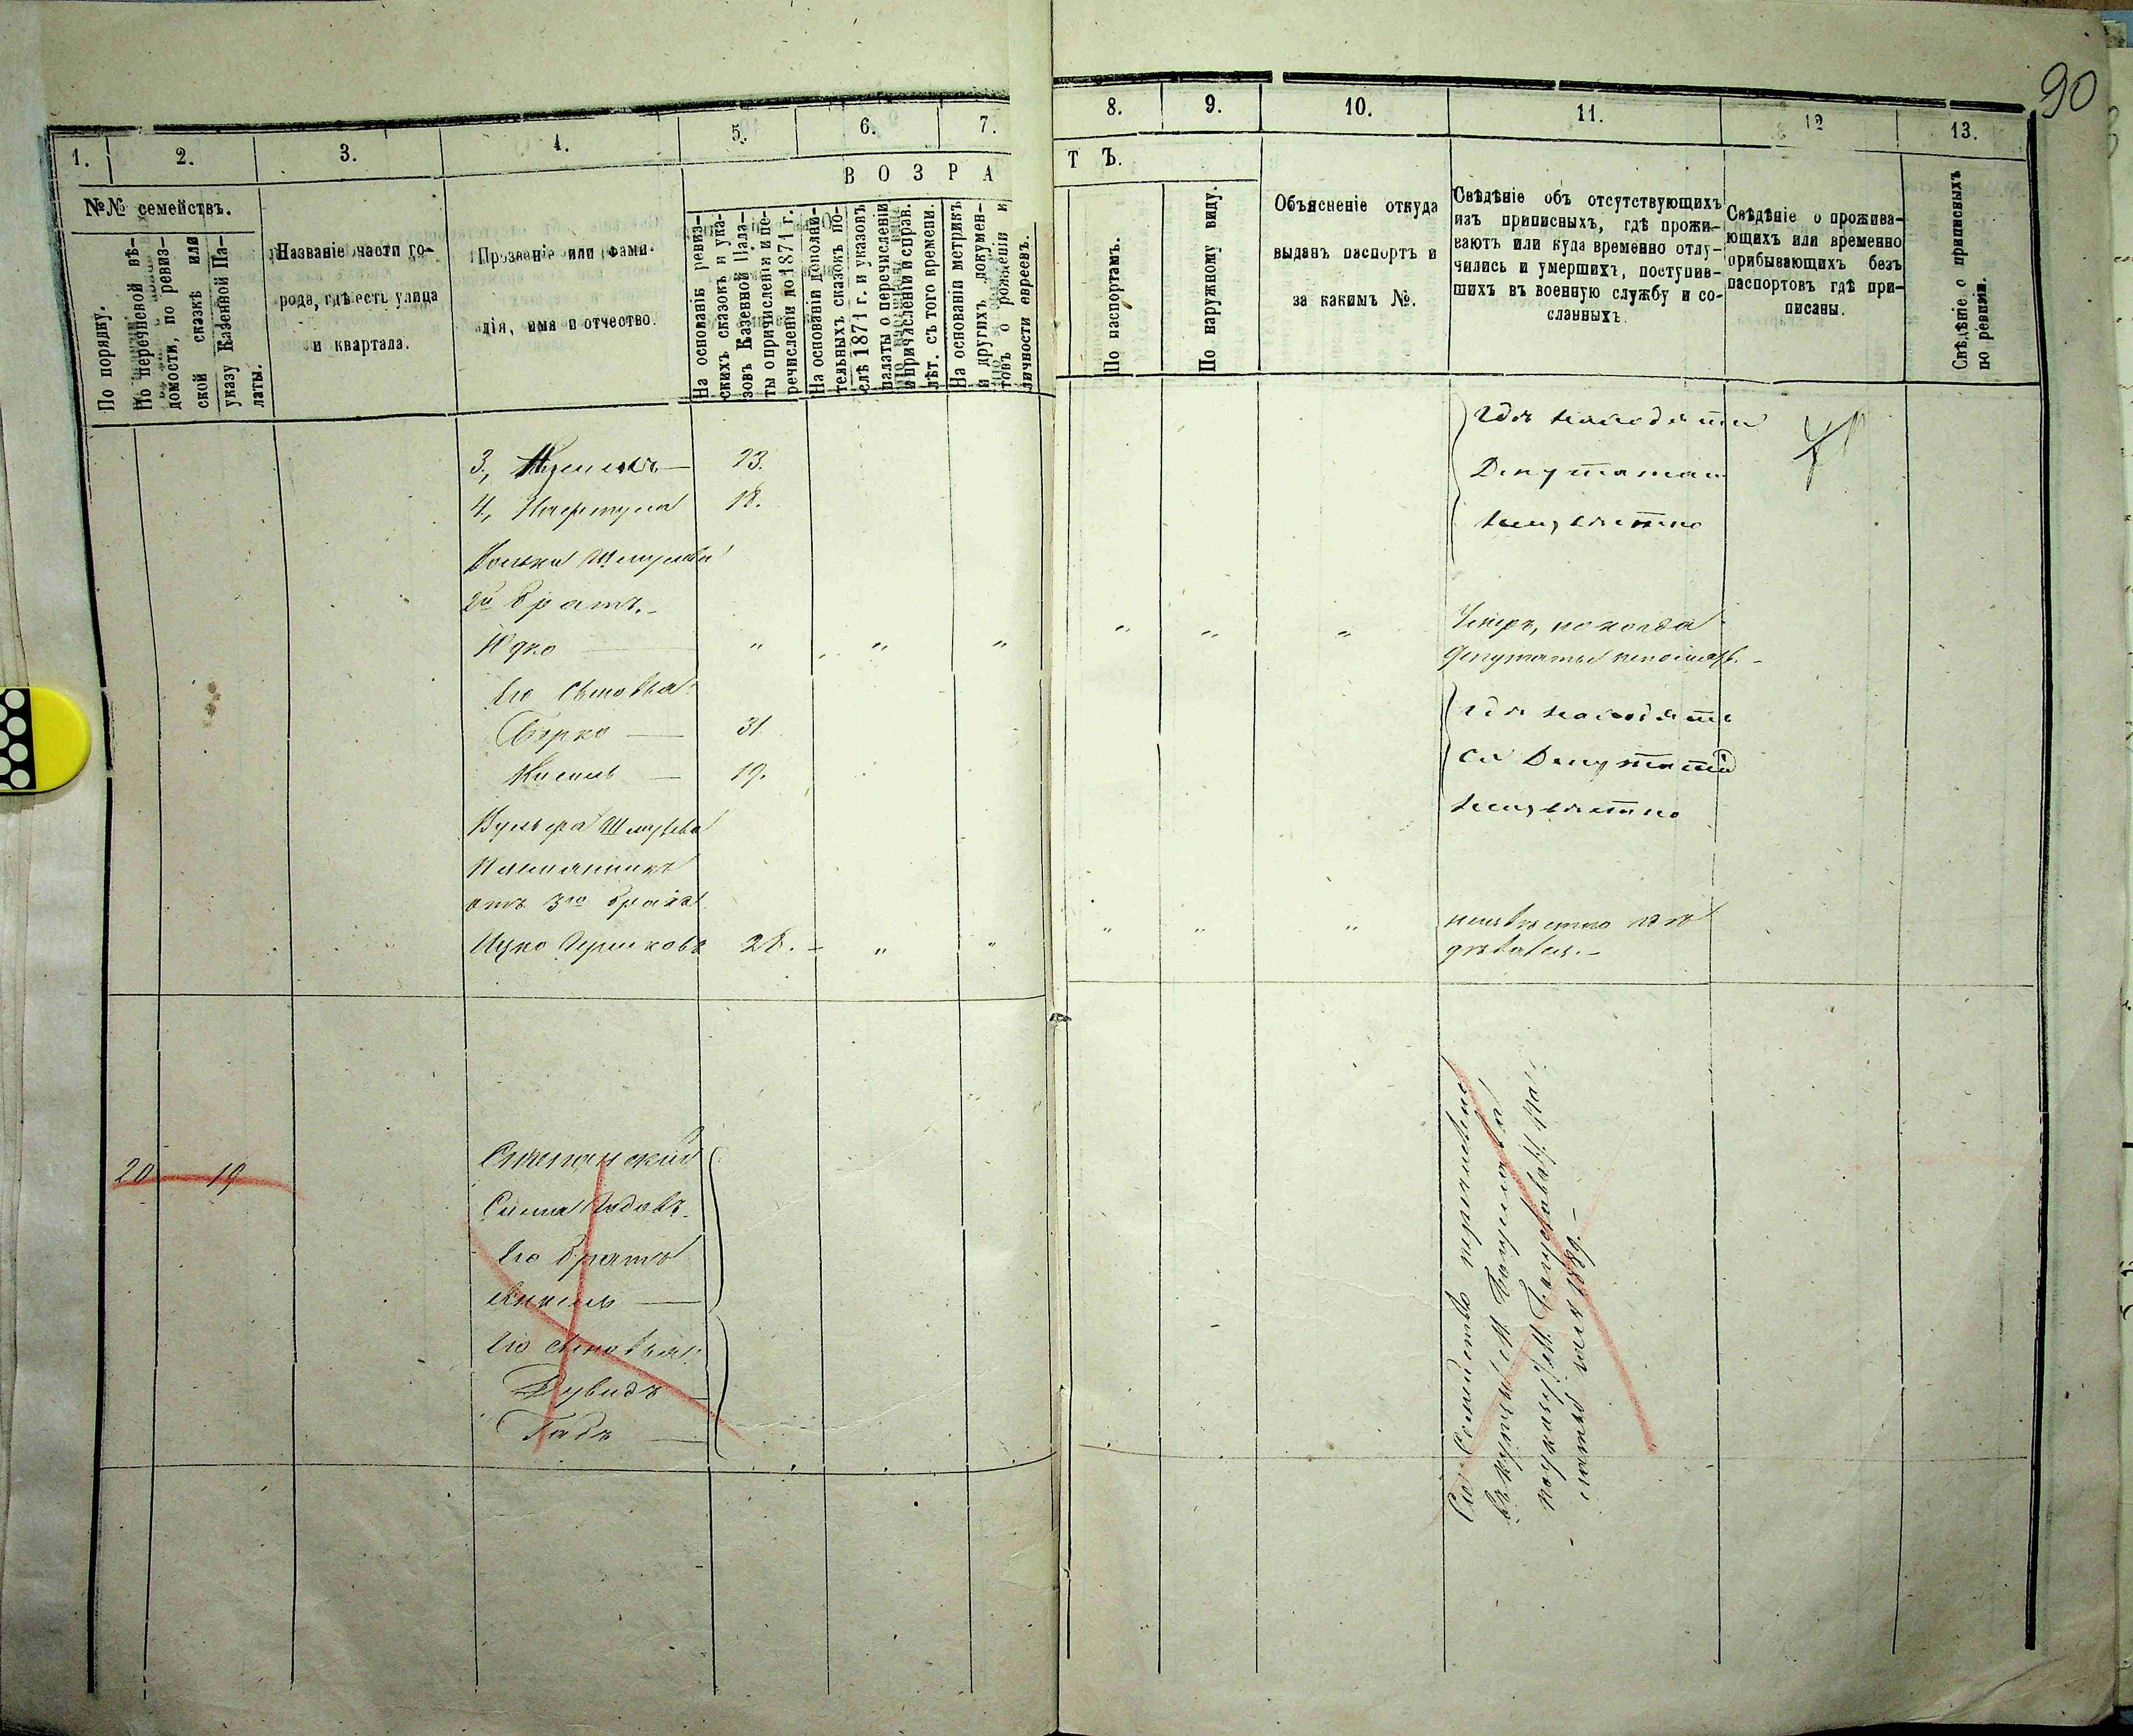 90
1. 2. 3. 4. 5. 6. 7. 8. 9. 10. 11. 12 13.
№№ семействъ.
По порядку.
По перечневой вѣ-
домости, по ревиз-
ской сказкѣ или
указу Казенной Па-
латы.
Названіе части го-
рода, гдѣ есть улица
и квартала.
Прозваніе или фами-
лія, имя и отчество.
ВОЗРАСТЪ.
На основаніи ревиз-
скихъ сказокъ и ука-
зовъ Казенной Пала-
ты о причисленіи и пе-
речисленіи до 1871 г.
На основаніи дополни-
тельныхъ сказокъ по-
слѣ 1871 г. и указовъ
палаты о перечисленіи
и причисленіи и справ.
лѣт. съ того времени.
На основаніи метрикъ
и другихъ докумен-
товъ о рожденіи и
личности евреевъ.
По паспортамъ.
По наружному виду.
Объясненіе откуда
выданъ паспортъ и
за какимъ №.
Свѣдѣніе объ отсутствующихъ
изъ приписныхъ, гдѣ прожи-
ваютъ или куда временно отлу-
чились и умершихъ, поступив-
шихъ въ военную службу и со-
сланныхъ.
Свѣдѣніе о прожива-
ющихъ или временно
прибывающихъ безъ
паспортовъ гдѣ при-
писаны.
Свѣдѣніе о приписныхъ
по ревизіи.
3, 23. гдѣ находятся
4, 18. Депутатамъ
неизвѣстно
Шмулева
2й братъ.
Юдко " " " " " " Умеръ, но когда
депутаты
Его сыновья:
Берко 31 гдѣ находятся
Кисель 19. Депутатамъ
неизвѣстно
Вульфа Шмулева
племянникъ
отъ 3го брата
Ицко Гершковъ 28. " " " " " неизвѣстно гдѣ
дѣвался.
20 19 Степанскій
Симха Гадовъ
Его братъ
Анкель
Его сыновья:
Дувидъ
Гадъ
Сіе Семейство перечислено
въ купцы м. Богуслава
по указу
1889.